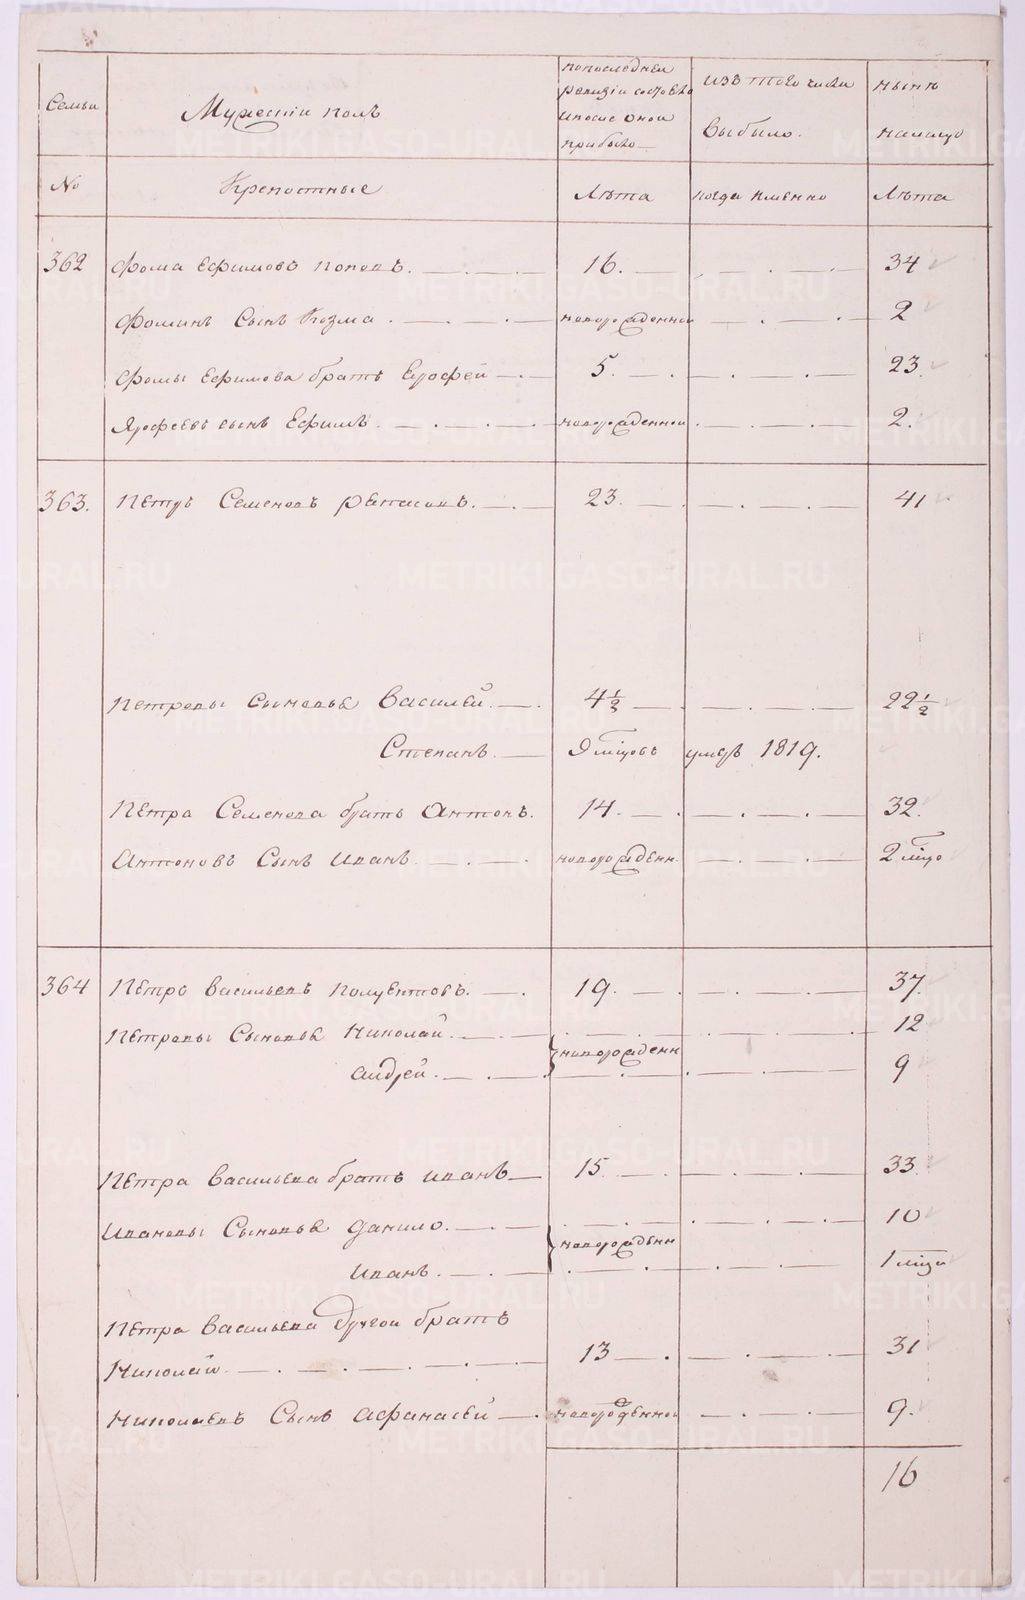 Семьи
Мужескій полъ
по последней
ревизіи состояло
и после оной
прибыло
изъ того числа
выбыло.
ныне
налицо
No
Крепостные
Лѣта
когда именно
Лѣта
362 Фома Ефимовъ Поповъ. 16. 34
Фоминъ Сынъ Козма. новорожденной 2
Фомы Ефимова братъ Ерофей 5. 23.
Ярофеевъ сынъ Ефимъ новорожденной 2.
363. Петръ Семеновъ 23. 41
Петровы Сыновья Василей. 4 1/2 22 1/2
Степанъ. 9 мцовъ умеръ 1819.
Петра Семенова братъ Антонъ. 14. 32.
Антоновъ Сынъ Иванъ. новорожденн. 2 мцо
364 Петръ Васильевъ Полуектовъ. 19. 37.
Петровы Сыновья Николай. 12
новорожденн
Андрей. 9
Петра Васильева братъ Иванъ 15. 33.
Ивановы Сыновья Данило. 10
новорожденн
Иванъ. 1 мцы
Петра Васильева другой братъ
Николай 13 31
Николаевъ Сынъ Афанасей новорожденной 9.
16
METRIKI.GASO-URAL.RU